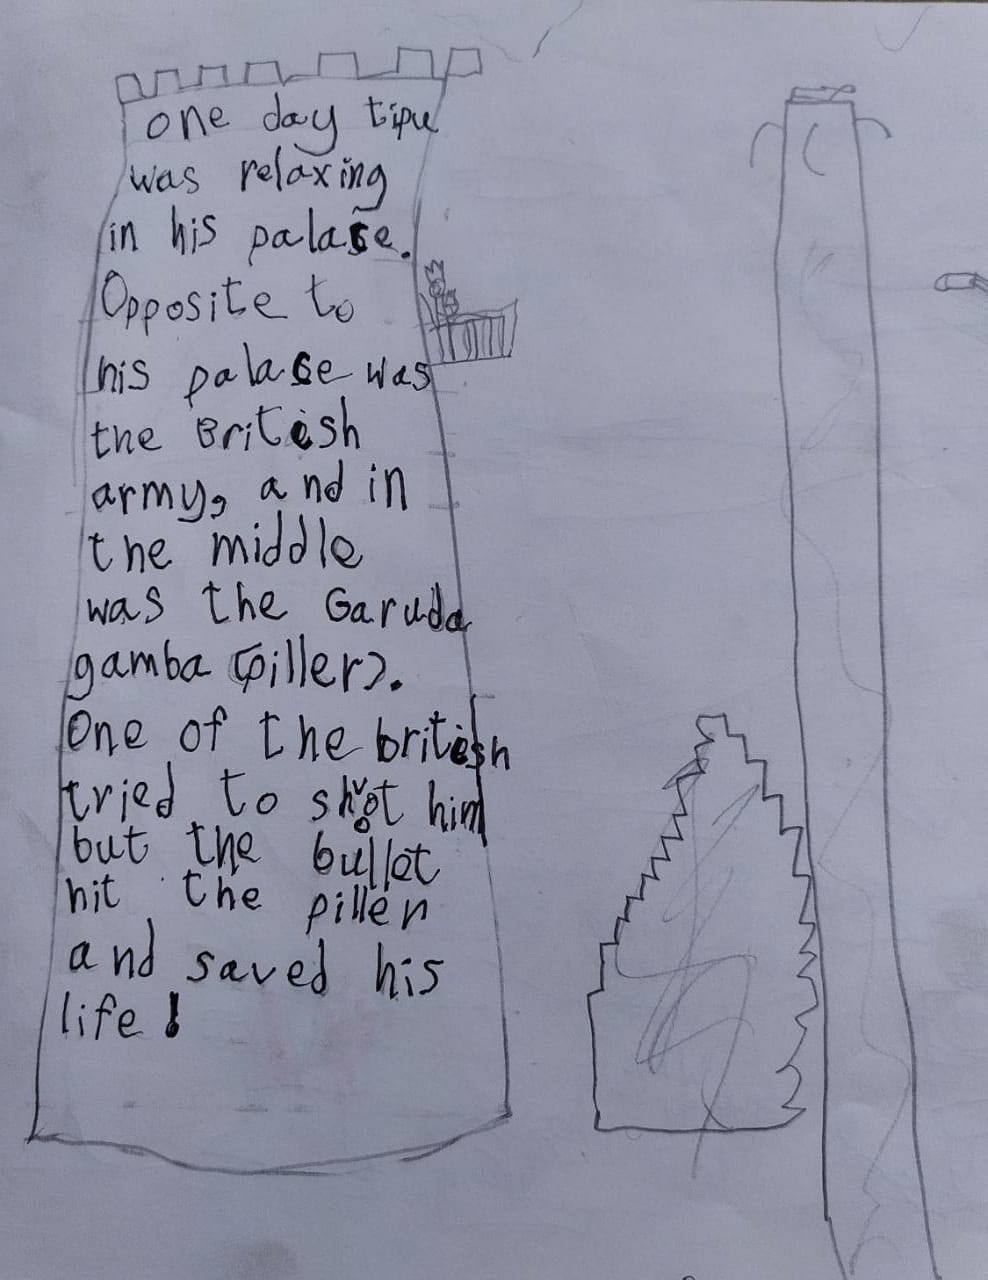 one day tipu
was relaxing
in his palace.
Opposite to
his palace was
the British
army, and in
the middle
was the Garuda
gamba (piller).
One of the british
tried to shoot him
but the bullet
hit the piller
and saved his
life!